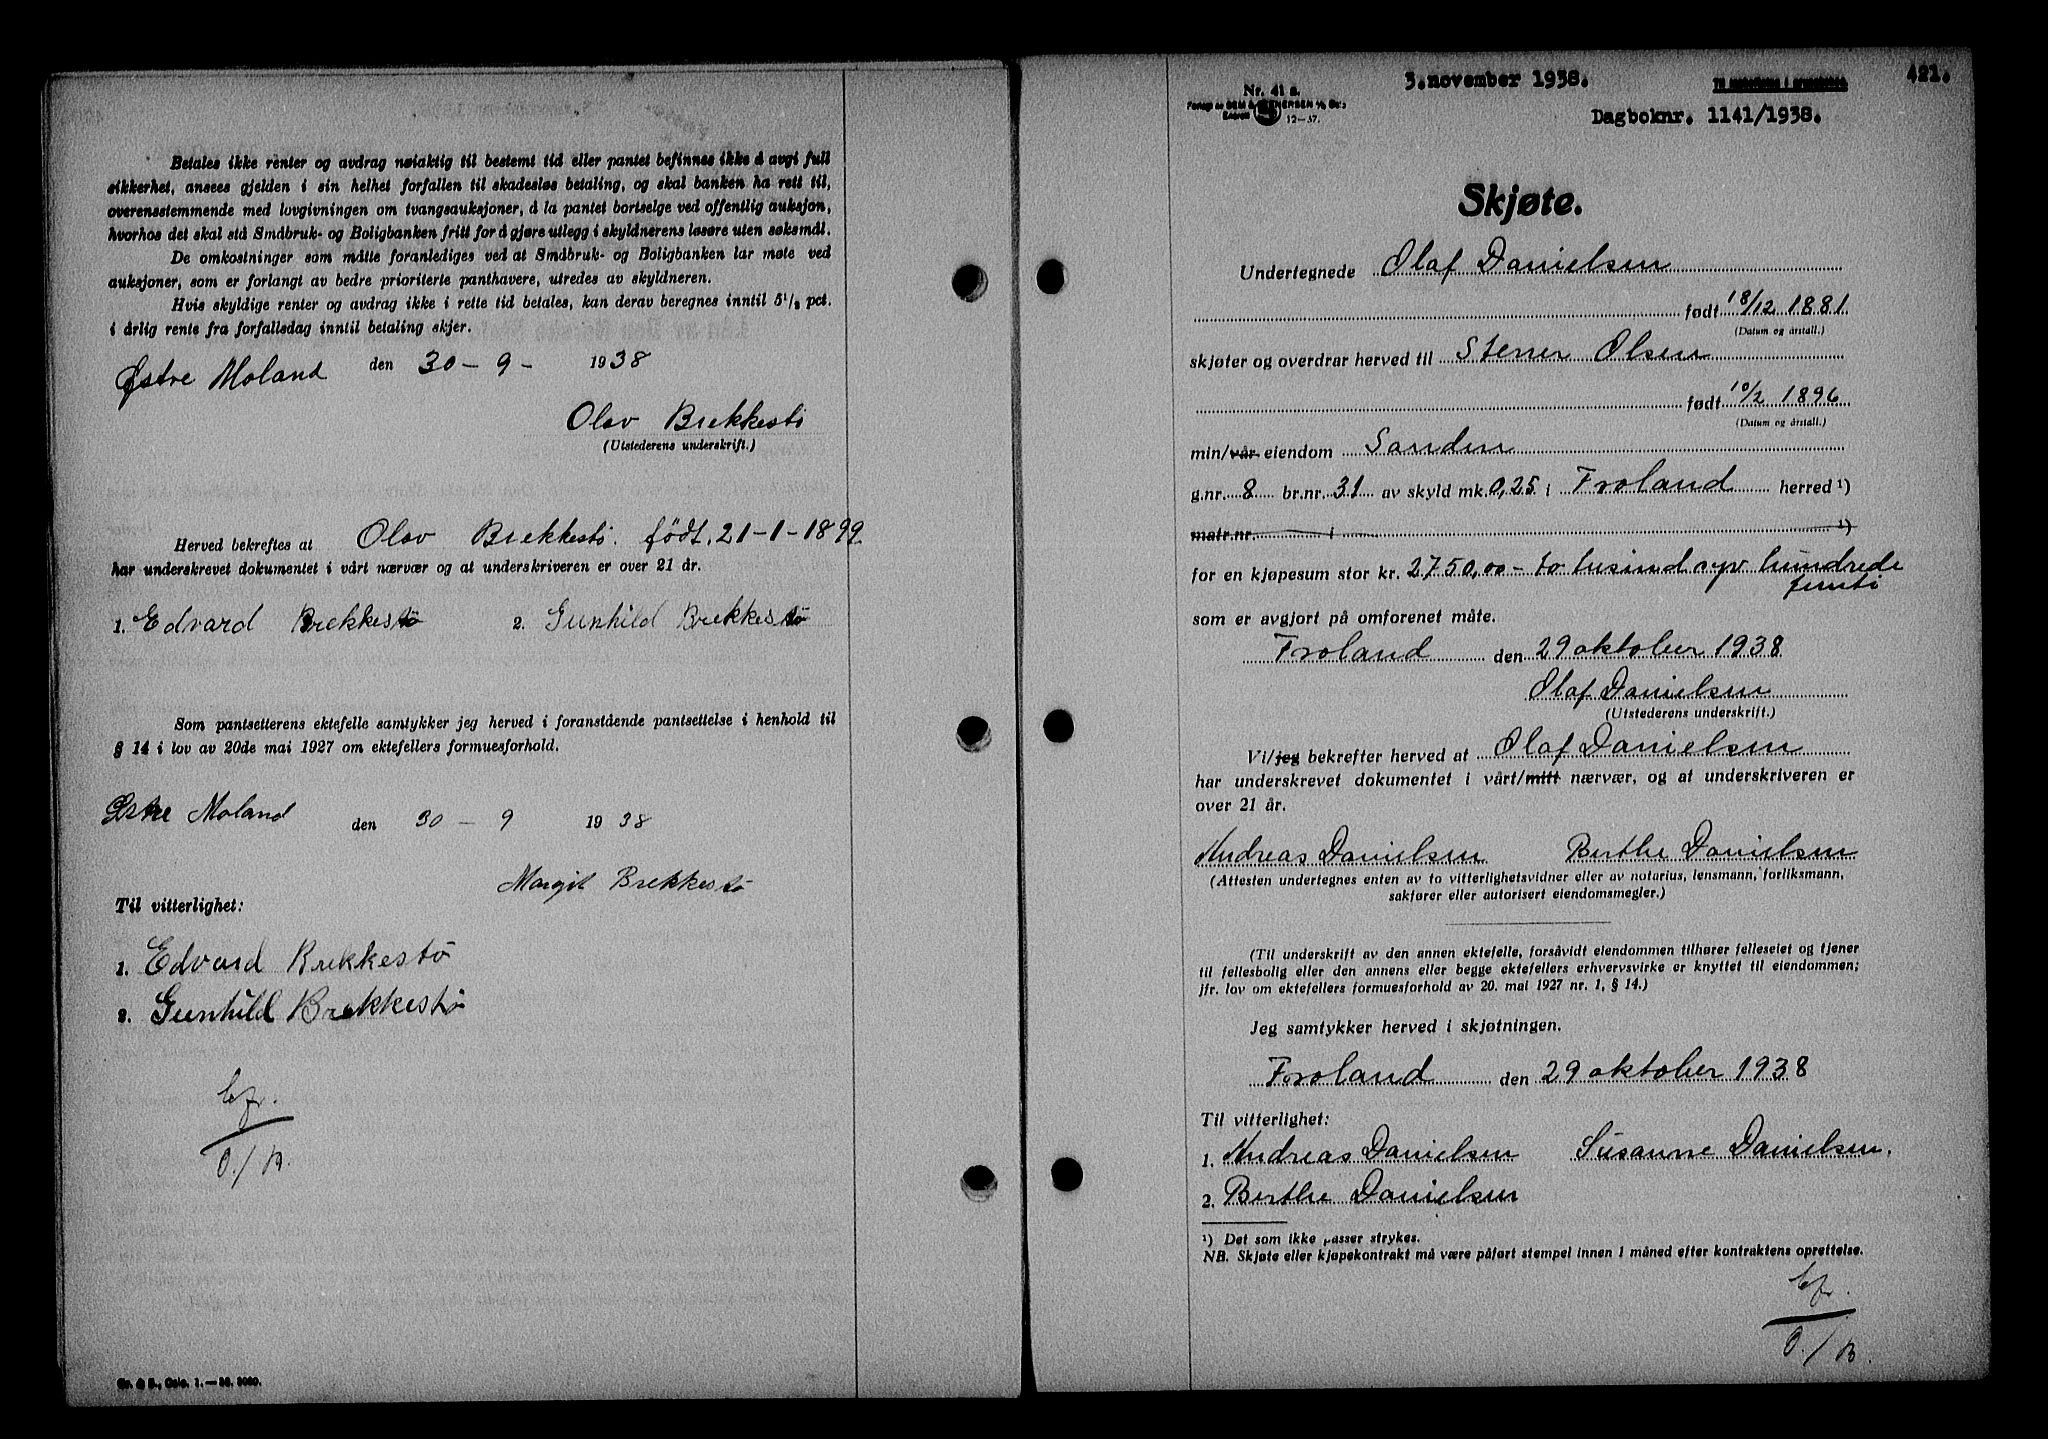 Betales ikke renter og avdrag nøiaktig til bestemt tid eller pantet befinnes ikke å avgi full
sikkerhet, ansees gjelden i sin helhet forfallen til skadesløs betaling, og skal banken ha rett til,
overensstemmende med lovgivningen om tvangsauksjoner, å la pantet bortselge ved offentlig auksjon,
hvorhos det skal stå Småbruk- og Boligbanken fritt for å gjøre utlegg i skyldnerens løsøre uten søksmål.
De omkostninger som måtte foranlediges ved at Småbruk- og Boligbanken lar møte ved
auksjoner, som er forlangt av bedre prioriterte panthavere, utredes av skyldneren.
Hvis skyldige renter og avdrag ikke i rette tid betales, kan derav beregnes inntil 5 1/2 pct.
i årlig rente fra forfallsdag inntil betaling skjer.
Østre Moland den 30 - 9 - 1938
Olav Brekkestø
(Utstederens underskrift.)
Herved bekreftes at Olav Brekkestø. født. 21-1-1899
har underskrevet dokumentet i vårt nærvær og at underskriveren er over 21 år.
1. Edvard Brekkestø 2. Gunhild Brekkestø
Som pantsetterens ektefelle samtykker jeg herved i foranstående pantsettelse i henhold til
§ 14 i lov av 20de mai 1927 om ektefellers formuesforhold.
Østre Moland den 30 - 9 1938
Margit Brekkestø
Til vitterlighet:
1. Edvard Brekkestø
2. Gunhild Brekkestø
O./B.
Nr. 41 a.
12-37.
3.november 1938.
421.
Dagboknr. 1141/1938.
Skjøte.
Undertegnede Olaf Danielsen
født 18/12 1881
(Datum og årstall.)
skjøter og overdrar herved til Stener Olsen
født 10/2 1896
(Datum og årstall.)
min/vår eiendom Sanden
g.nr. 8 br.nr. 31 av skyld mk. 0,25 i Froland herred ¹)
matr.nr. i ¹)
for en kjøpesum stor kr. 2750,00 - to tusind syv hundrede
femti
som er avgjort på omforenet måte.
Froland den 29 oktober 1938
Olaf Danielsen
(Utstederens underskrift.)
Vi/jeg bekrefter herved at Olaf Danielsen
har underskrevet dokumentet i vårt/mitt nærvær, og at underskriveren er
over 21 år.
Andreas Danielsen Berthe Danielsen
(Attesten undertegnes enten av to vitterlighetsvidner eller av notarius, lensmann, forliksmann,
sakfører eller autorisert eiendomsmegler.)
(Til underskrift av den annen ektefelle, forsåvidt eiendommen tilhører felleseiet og tjener
til fellesbolig eller den annens eller begge ektefellers erhvervsvirke er knyttet til eiendommen;
jfr. lov om ektefellers formuesforhold av 20. mai 1927 nr. 1, § 14.)
Jeg samtykker herved i skjøtningen.
Froland den 29 oktober 1938
Til vitterlighet:
1. Andreas Danielsen Susanne Danielsen.
2. Berthe Danielsen
¹) Det som ikke passer strykes.
NB. Skjøte eller kjøpekontrakt må være påført stempel innen 1 måned efter kontraktens oprettelse.
O./B.